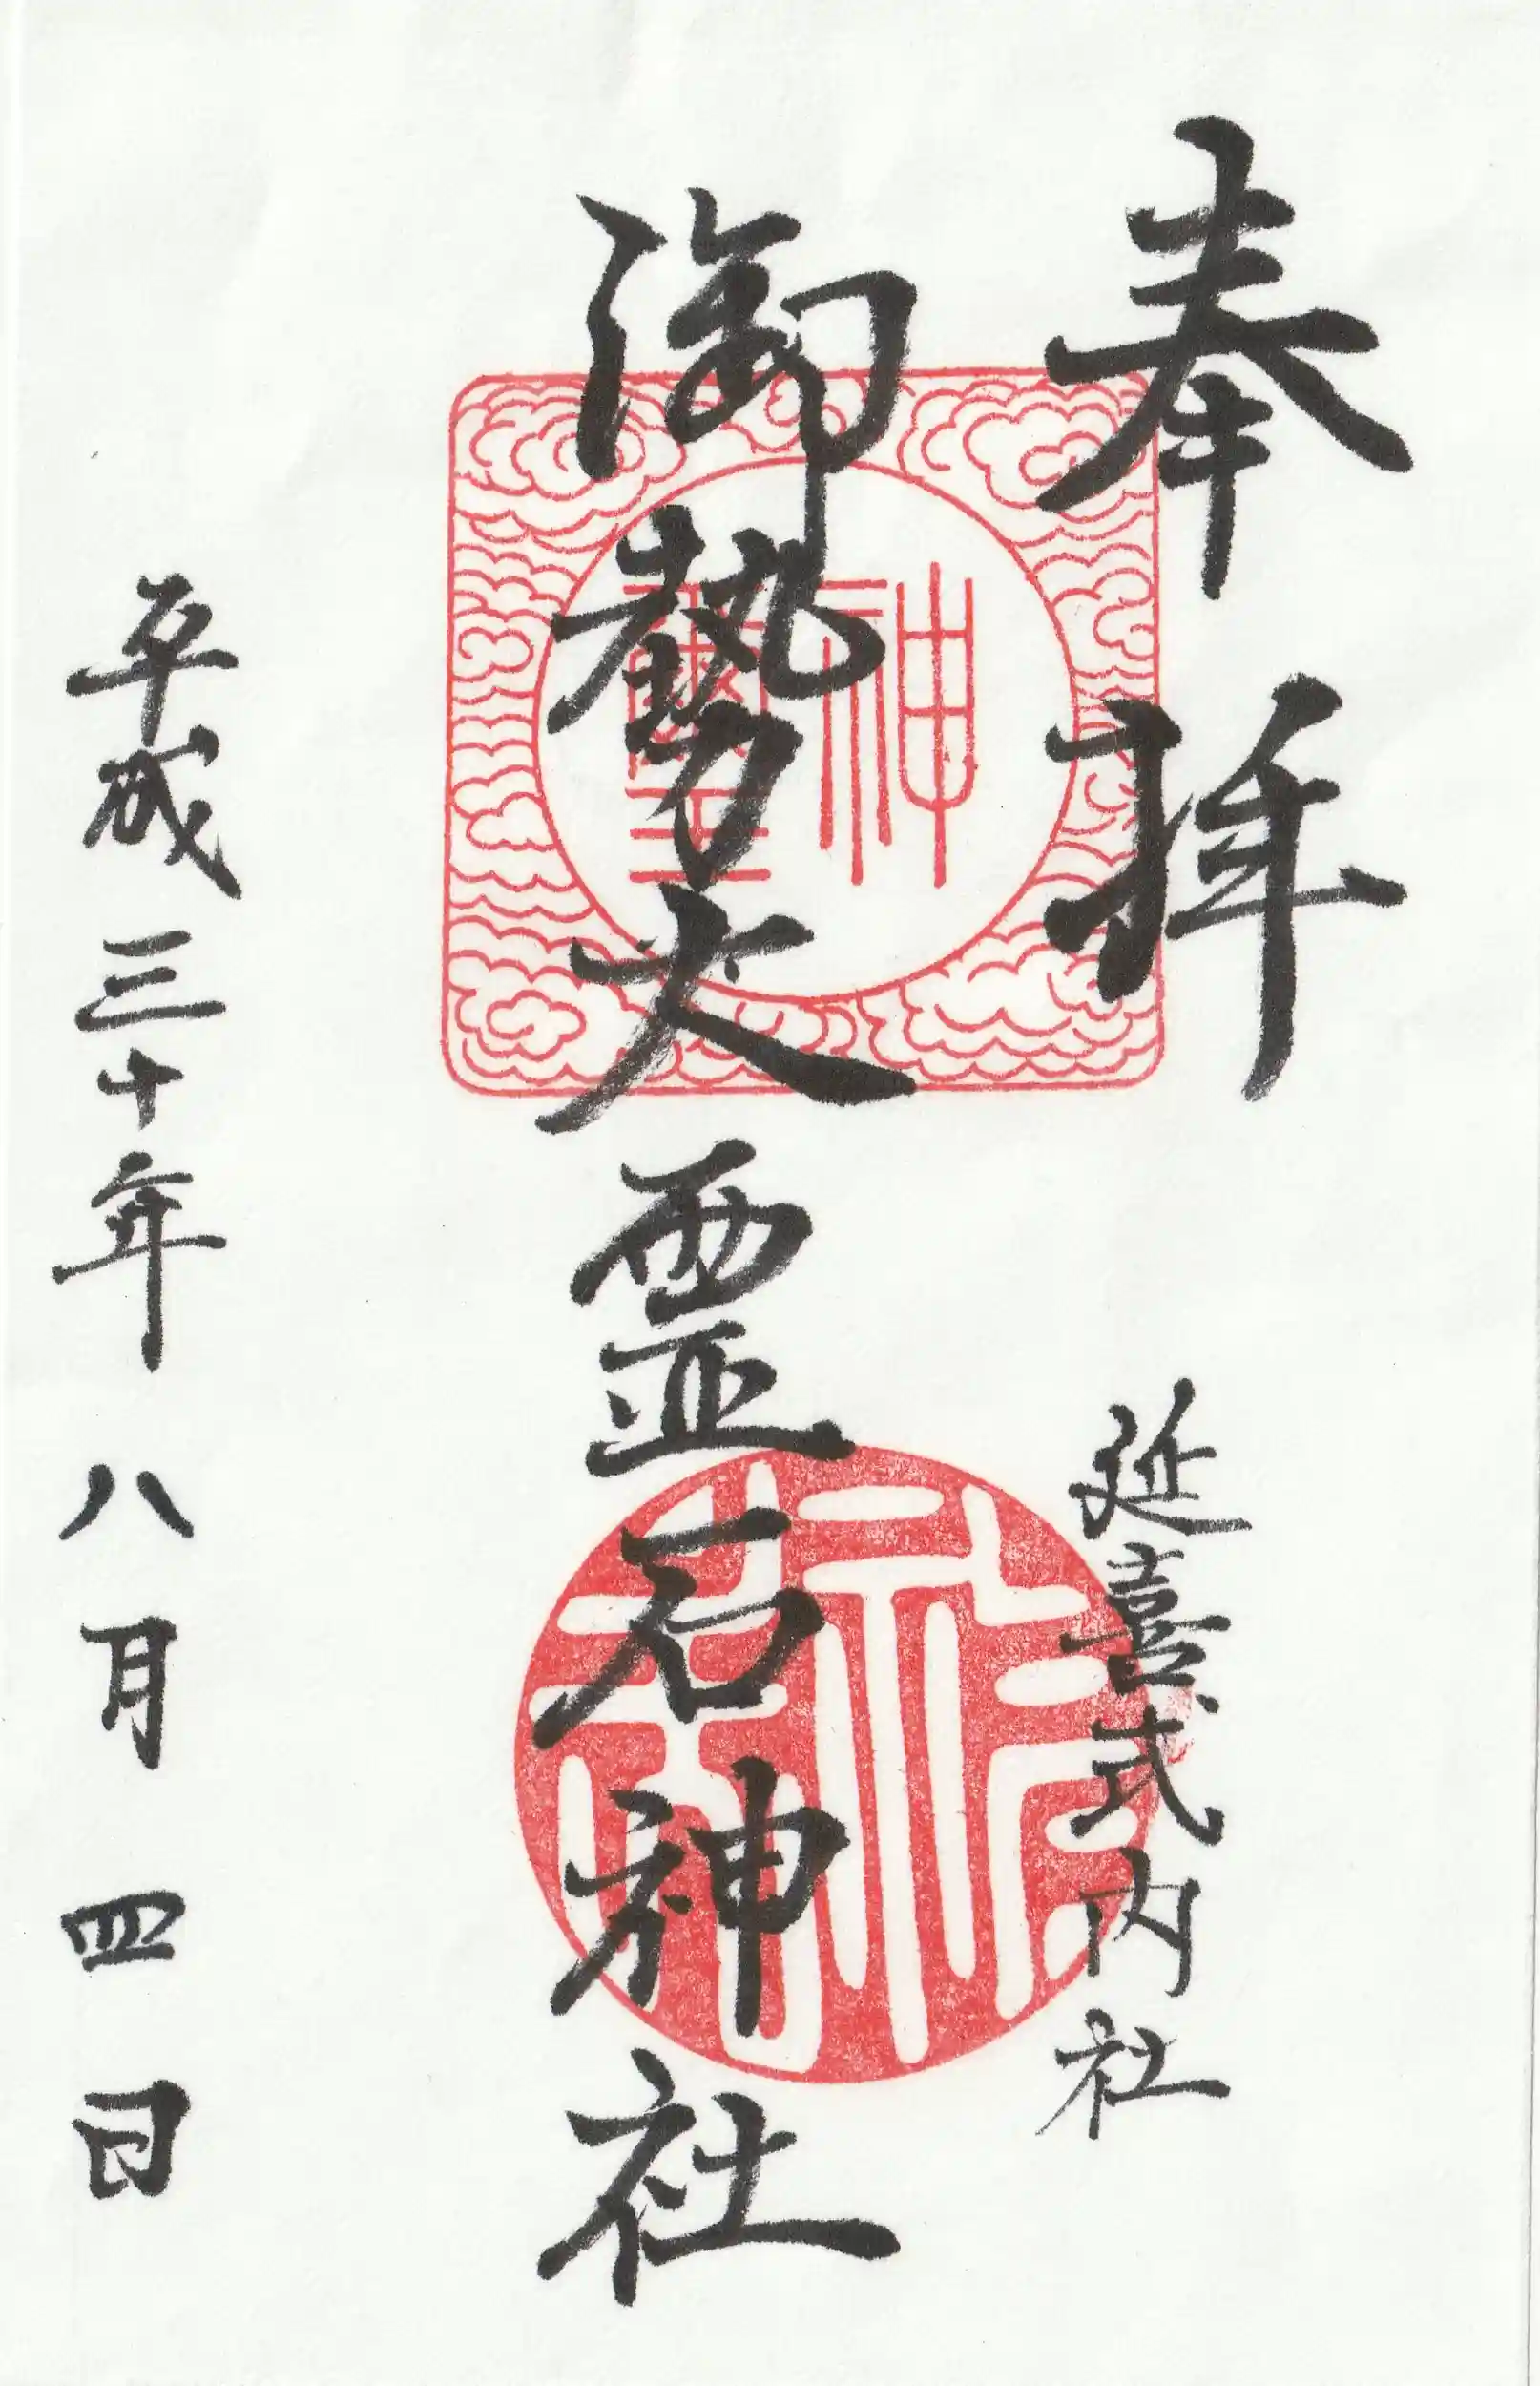 奉拝
延喜式内社
御勢大霊石神社
神璽
平成三十年八月四日